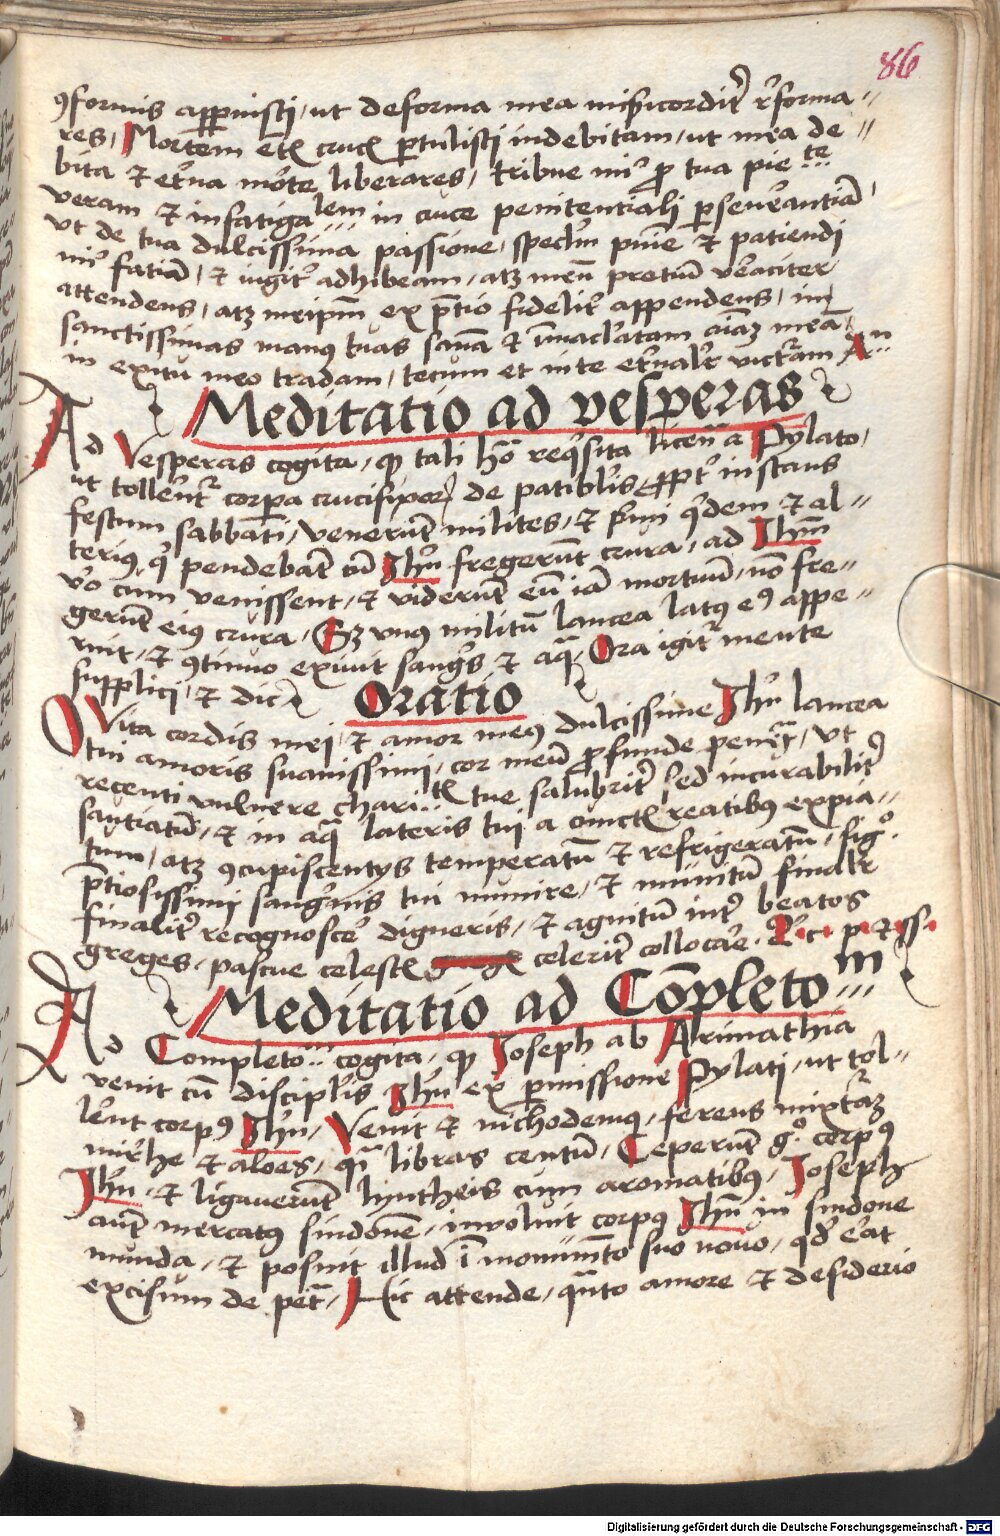 86
ꝯformis apparuisti, ut deforma mea misericorditer reforma-
res, Mortem etiam crucis pertulisti indebitam, ut mea de-
bita et eterna morte liberares, tribue mihi pro tua pietate
veram et infatigabilem in cruce penitentiali perseverantiam
ut de tua dulcissima passione, speculum pene et patiendi
mihi fatiam, et iugiter adhibeam, atque meum pretium veraciter
attendens, atque meipsum ex pretio fideliter appendens, in
sanctissimas manus tuas sanam et immaculatam animam meam
in exitu meo tradam, tecum et in te eternaliter victuram Amen
Meditatio ad vesperas
Ad Vesperas cogita, quod tali hora requisita licentia a Pylato,
ut tollerentur corpora crucifixorum de patibulis, propter instans
festum sabbati, venerunt milites, et primi quidem et al-
terius, qui pendebant cum Ihesu fregerunt crura, ad Ihesum
vero cum venissent, et viderunt eum iam mortuum, non fre-
gerunt eius crura, Sed unus militum lancea latus eius appe-
ruit, et ꝯtinuo exivit sanguis et aqua, Ora igitur mente
supplici, et dic
Oratio
O Vita cordis mei, et amor meus dulcissime Ihesu lancea
tui amoris suavissimi, cor meum profunde penetra, ut
recenti vulnere charitatis tue salubriter sed incurabiliter
sautiatum, et in aqua lateris tui a cunctis reatibus expia-
tum, atque ꝯcupiscentys temperatum et refrigeratum, signo
pretiosissimi sanguinis tui munire, et munitum finaliter
finaliter recognoscere digneris, et agnitum inter beatos
greges, pascue celestis celeriter collocare. Qui c. p. et ss.
Meditatio ad Completorium
Ad Completorium cogita, quod Joseph ab Arimathia
venit cum discipulis Ihesu ex permissione Pylati, ut tol-
lerent corpus Ihesu, Venit et nichodemus, ferens mixturam
mirrhe et aloes, quasi libras centum, Ceperunt ergo corpus
Ihesu, et ligaverunt lyntheis cum aromatibus, Joseph
autem mercatus sindonem, involuit corpus Ihesu in sindone
munda, et posuit illud in monumento suo novo, quod erat
excisum de petra, Hic attende, quanto amore et desiderio
Digitalisierung gefördert durch die Deutsche Forschungsgemeinschaft - DFG